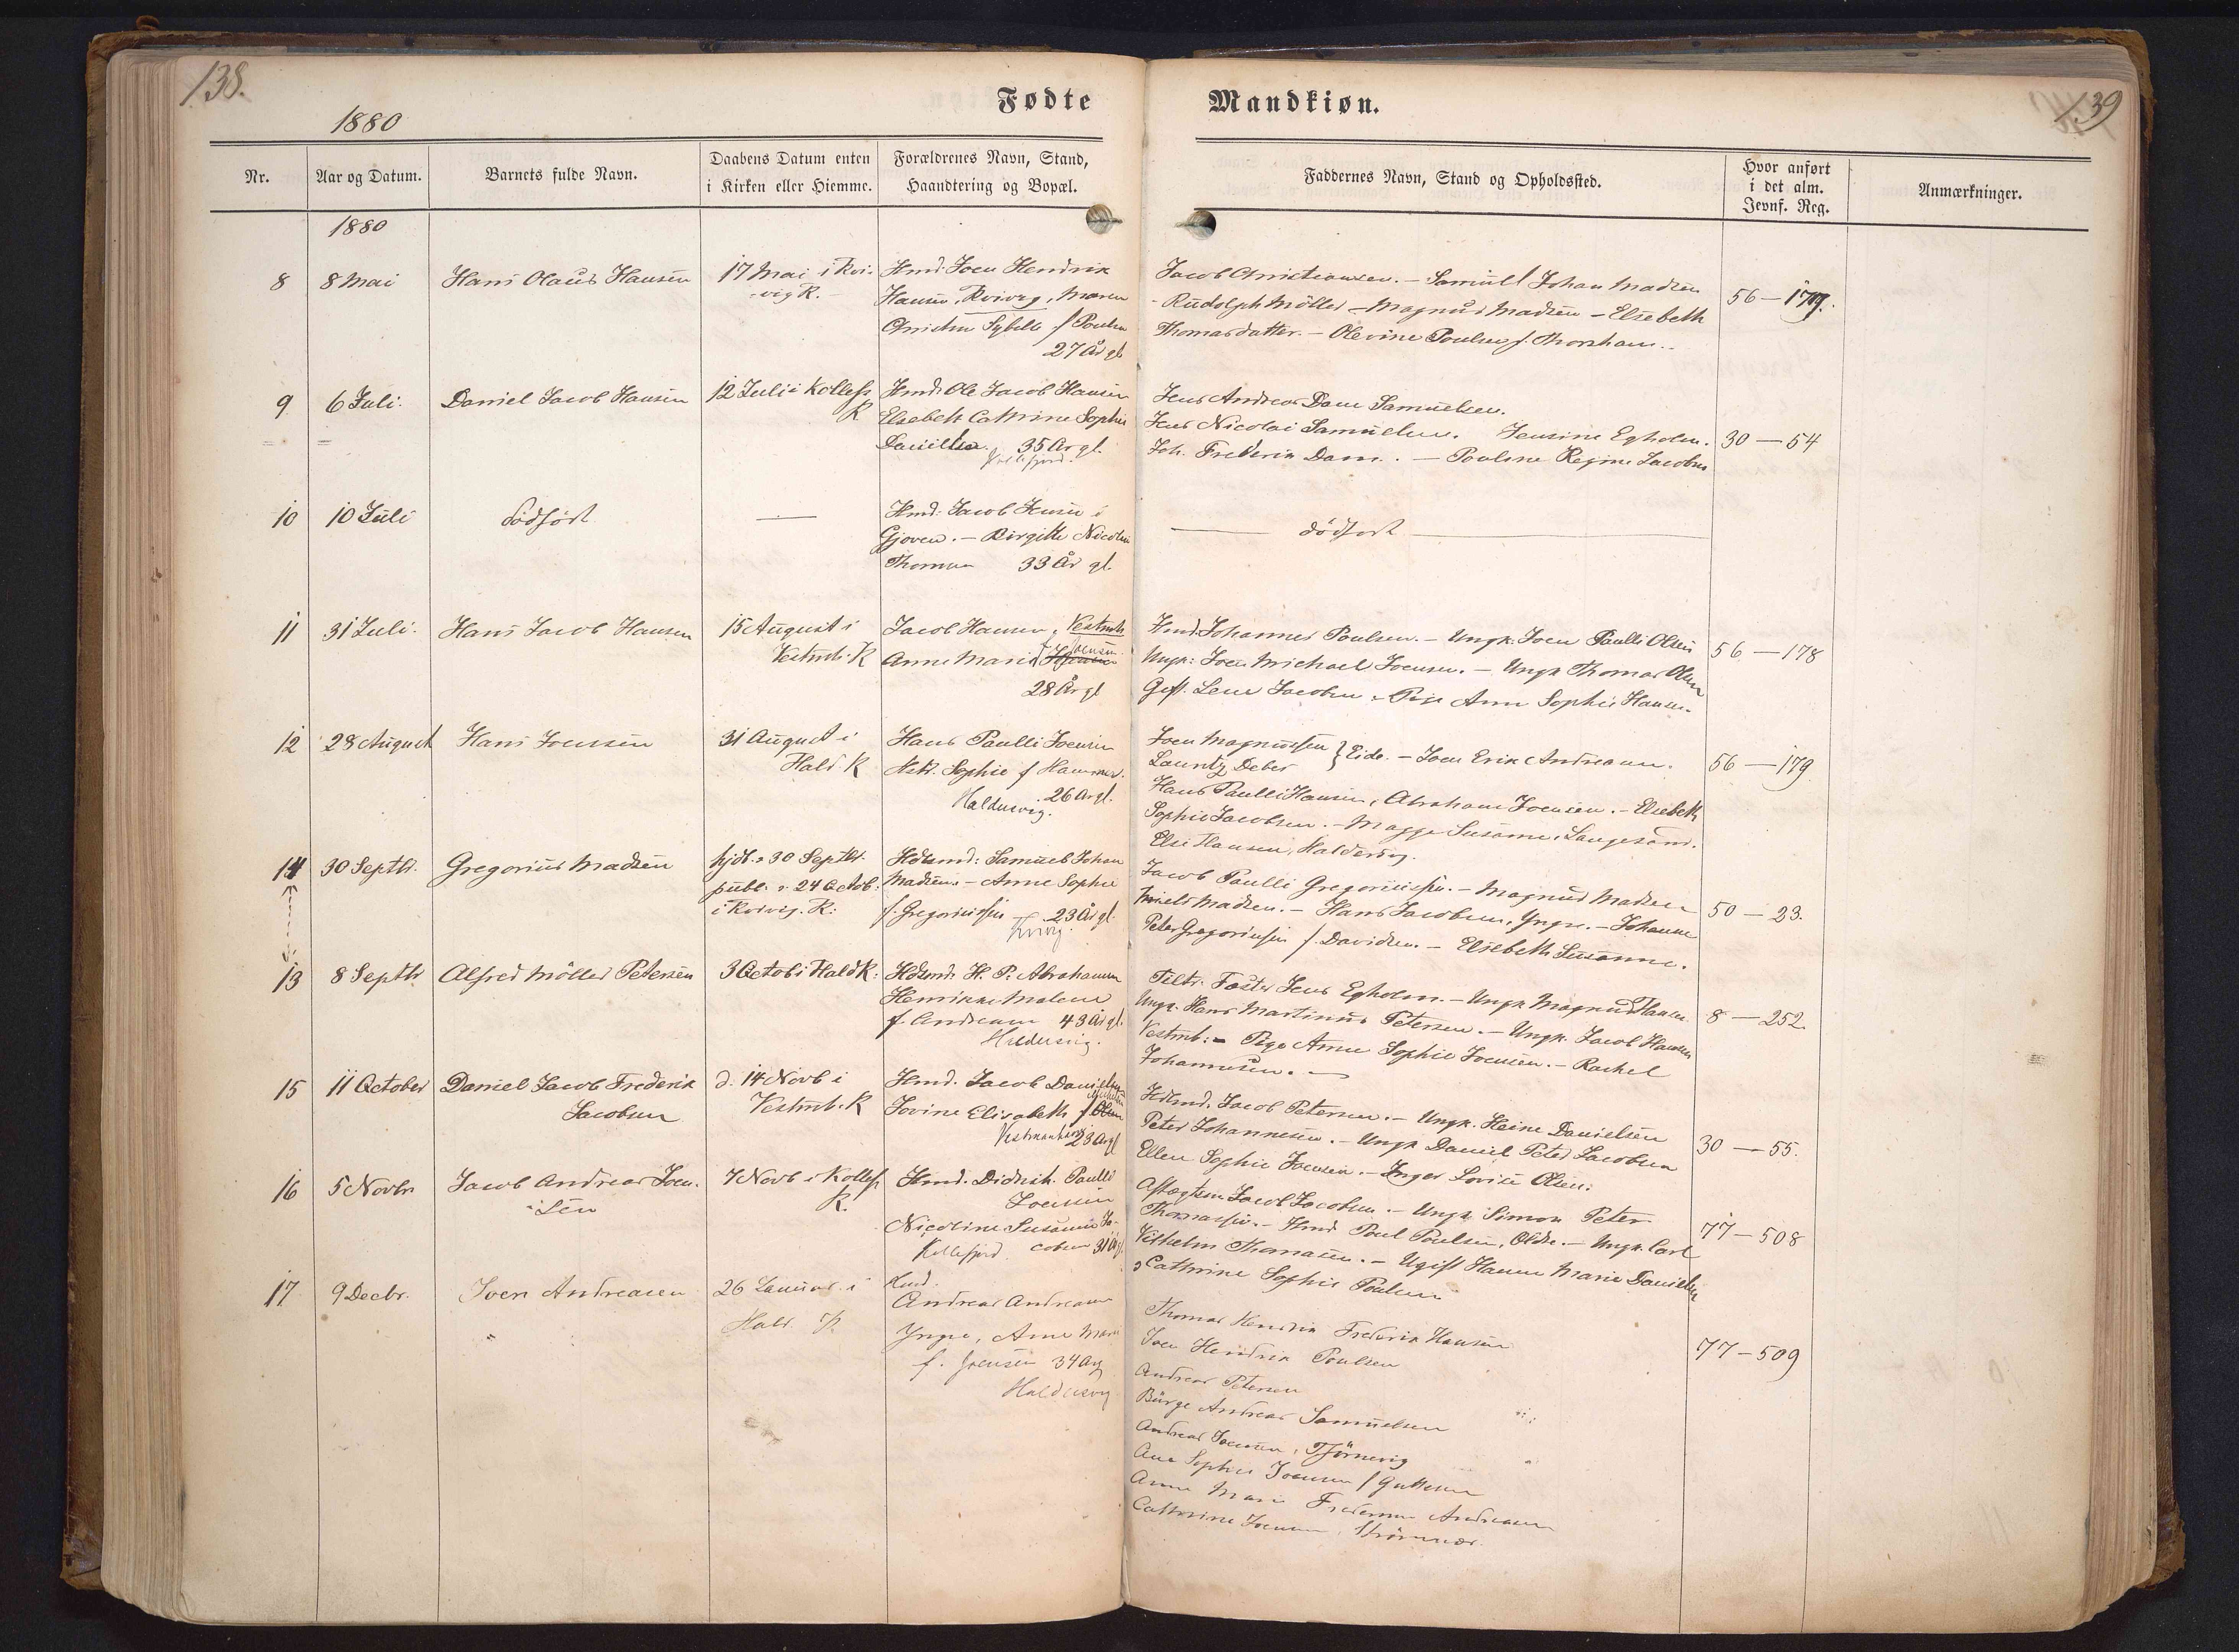 138.
1880
Fødte
Mandkiøn.
139
Nr.
Aar og Datum.
Barnets fulde Navn.
Daabens Datum enten
i Kirken eller Hiemme.
Forældrenes Navn, Stand,
Haandtering og Bopæl.
Faddernes Navn, Stand og Opholdssted.
Hvor anført
i det alm.
Jevnf. Reg.
Anmærkninger.
1880
8
8 Mai
Hans Olaus Hansen
17 Mai i Kvi-
vig K.
Hmd. Joen Hendrik
Hansen, Kvivig, Maren
Christine Sybille f Poulsen
27 År gl
Jacob Christiansen. – Samuel Johan Madsen
- Rudolph Möller – Magnus Madsen – Elsebeth
Thomasdatter. – Olevine Poulsen f. Thorsham.
56 – 177.
9
6 Juli.
Daniel Jacob Hansen
12 Juli i Kollefj.
K
Hmd. Ole Jacob Hansen
Elsebeth Cathrine Sophie
Danielsen 35 Ar gl.
Kollefjord.
Jens Andreas Dam Samuelsen.
Jens Nicolai Samuelsen. Jensine Egholm.
Joh. Frederik Dam. – Pouline Regine Jacobsen
30 – 54
10
10 Juli
dödfödt
—
Hmd: Jacob Jensen i
Gjoven. – Birgitte Nicoline
Thomsen 33 År gl.
— dödfödt —
11
31 Juli.
Hans Jacob Hansen
15 August i
Vestmh. K
Jacob Hansen, Vestmh
Joensen
Anne Marie
28 År gl
Hmd. Johannes Poulsen. – Ungk. Joen Paulli Olsen
Ungk: Joen Michael Joensen. – Ungk Thomas Olsen
Gift. Lene Jacobsen – Pige Anne Sophie Hansen.
56 – 178
12
28 August
Hans Joensen
31 August i
Hald. K
Hans Paulli Joensen
Sophie f Hammer.
26 Ar gl.
Haldersvig.
Joen Magnussen } Eide. – Joen Erik Andreasen.
Launtz Debes
Hans Paulli Hansen, Abraham Joensen. – Elsebeth
Sophie Jacobsen. – Magga Susanne, Langesand.
Else Hansen, Haldersvig.
56 – 179
14
30 Septb.
Gregorius Madsen
hjdb. d 30 Septbr.
publ. d. 24 Octob.
i Kvivig. K:
Hdsmd: Samuel Johan
Madsen. – Anne Sophie
f. Gregoriussen 23 År gl.
Kvivig.
Jacob Paulli Gregoriussen. – Magnus Madsen
Niels Madsen. – Hans Jacobsen, Yngre. – Johanne
Peter Gregoriussen f. Davidsen. – Elsebeth Susanne.
50 – 23.
13
8 Septb
Alfred Möller Petersen
3 Octob i Hald K:
Hdsmd. H. P. Abrahamsen
Henrikke Malene
f. Andreasen 43 År gl.
Haldersvig.
Jens Egholm. – Ungk Magnus Hansen
Ungk. Hans Martinus Petersen. – Ungk. Jacob Hansen
Vestmh: – Pige Anne Sophie Joensen. – Rachel
Johannesen. –
8 – 252.
15
11 October
Daniel Jacob Frederik
Jacobsen
d. 14 Novb i
Vestmh. K
Hmd. Jacob Danielsen
Jovine Elisabeth f
Vestmanhavn 23 Ar gl
Hdsmd. Jacob Petersen. – Ungk. Heine Danielsen
Peter Johannesen. – Ungk Daniel Peter Jacobsen
Ellen Sophie Joensen. – Inger Lovise Olsen.
30 – 55.
16
5 Novbr
Jacob Andreas Joen-
sen
7 Novb i Kollefj
K.
Hmd. Didrik Paulli
Joensen
Nicoline Susanne Ja-
Kollefjord. cobsen 31 Ar gl.
Aftægtsm. Jacob Jacobsen. – Ungk Simon Peter
Thomassen. – Hmd Poul Poulsen, Oldre. – Ungk. Carl
Vilhelm Thomasen. – Ugift Hanne Marie Danielsen
Cathrine Sophie Poulsen
77 – 508
17
9 Decbr.
Joen Andreasen
26 Januar i
Hald K.
Hmd.
Andreas Andreasen
Yngre, Anne Marie
f. Joensen 34 Ar g
Haldersvig
Thomas Hendrik Frederik Hansen
Joen Hendrik Poulsen
Andreas Petersen
Börge Andreas Samuelsen
Andreas Joensen, Tjörnevig
Ane Sophie Joensen f Guttesen
Anne Marie Andreasen
Cathrine Joensen, Strömnæs.
77 – 509